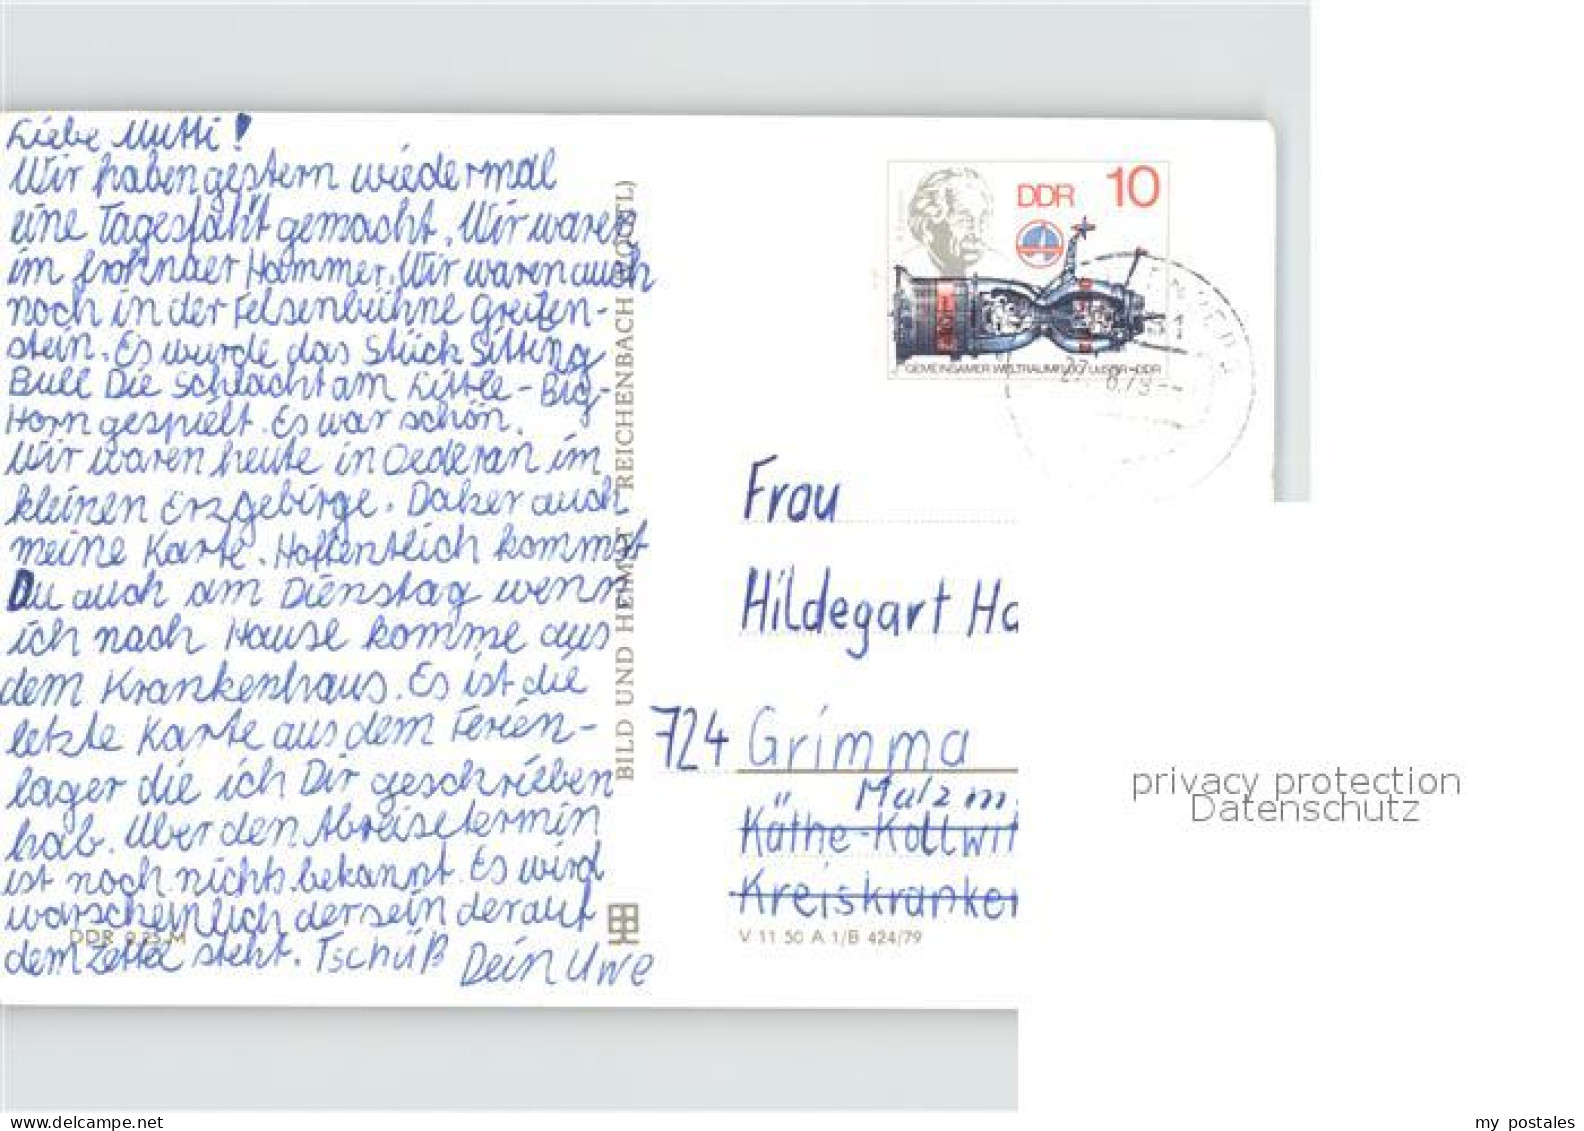 Liebe Mutti!
Wir haben gestern wiedermal
eine Tagesfahrt gemacht. Wir waren
im Frohnaer Hammer. Wir waren auch
noch in der Felsenbühne Greifen-
stein. Es wurde das Stück Sitting
Bull Die Schlacht am Little-Big-
Horn gespielt. Es war schön.
Wir waren heute in Oederan im
kleinen Erzgebirge. Daher auch
meine Karte. Hoffentlich kommst
Du auch am Dienstag wenn
ich nach Hause komme aus
dem Krankenhaus. Es ist die
letzte Karte aus dem Ferien-
lager die ich Dir geschrieben
hab. Über den Abreisetermin
ist noch nichts bekannt. Es wird
warscheinlich der sein der auf
dem Zettel steht. Tschüß Dein Uwe
DDR 0,25 M
BILD UND HEIMAT REICHENBACH (VOGTL)
DDR 10
GEMEINSAMER WELTRAUMFLUG UdSSR-DDR
Frau
Hildegart Ha
724 Grimma
Mulzm.
Käthe-Kollwit
Kreiskranken
V 11 50 A 1/B 424/79
privacy protection
Datenschutz
my postales